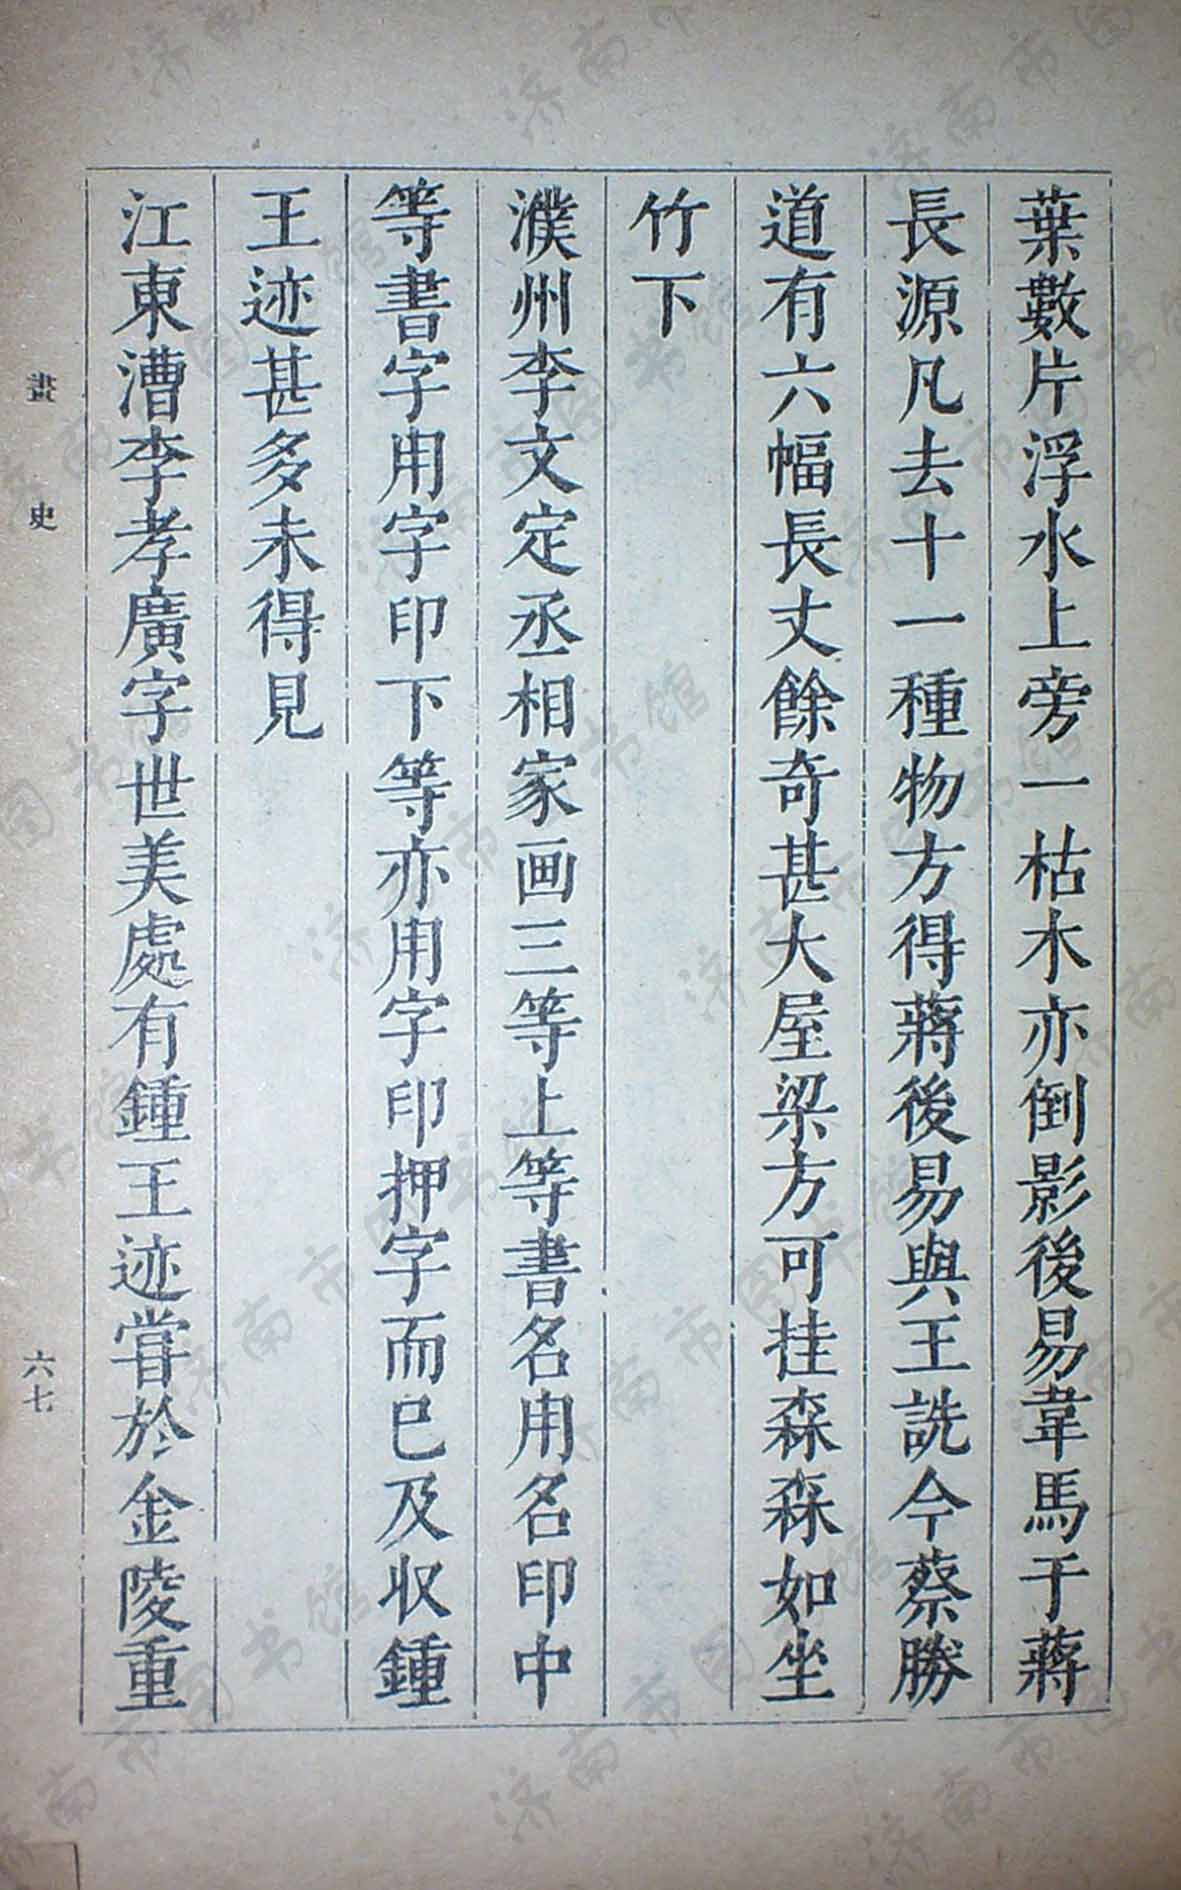 葉數片浮水上旁一枯木亦倒影後易韋馬于蔣
長源凡去十一種物方得蔣後易與王詵今蔡勝
道有六幅長丈餘奇甚大屋梁方可挂森森如坐
竹下
濮州李文定丞相家画三等上等書名用名印中
等書字用字印下等亦用字印押字而已及収鍾
王迹甚多未得見
江東漕李孝廣字世美處有鍾王迹嘗於金陵重
畫史
六七
济南市图书馆